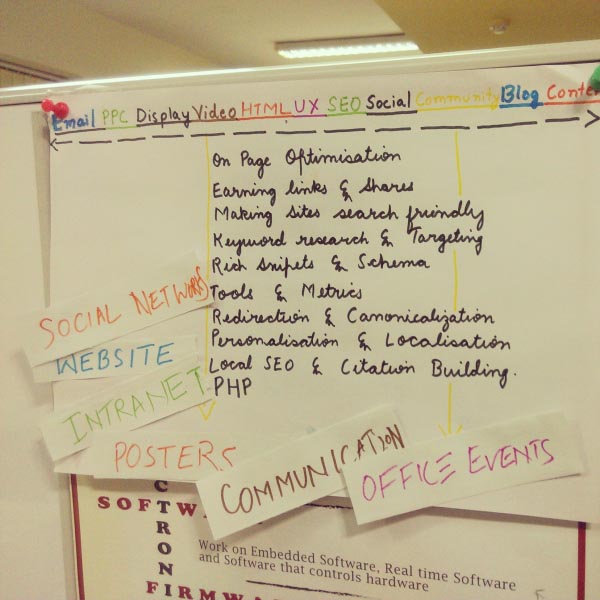 Email PPC Display Video HTML UX SEO Social Community Blog Conte
On Page Optimisation
Earning links & Shares
Making Sites search friendly
Keyword research & Targeting
Rich snipets & Schema
Tools & Metrics
Redirection & Canonicalization
Personalisation & Localisation
Local SEO & Citation Building.
PHP
SOCIAL NETWORKS
WEBSITE
INTRANET
POSTERS
COMMUNICATION
OFFICE EVENTS
SOFTW
CTRONI
Work on Embedded Software, Real time Software
and Software that controls hardware
FIRMWA